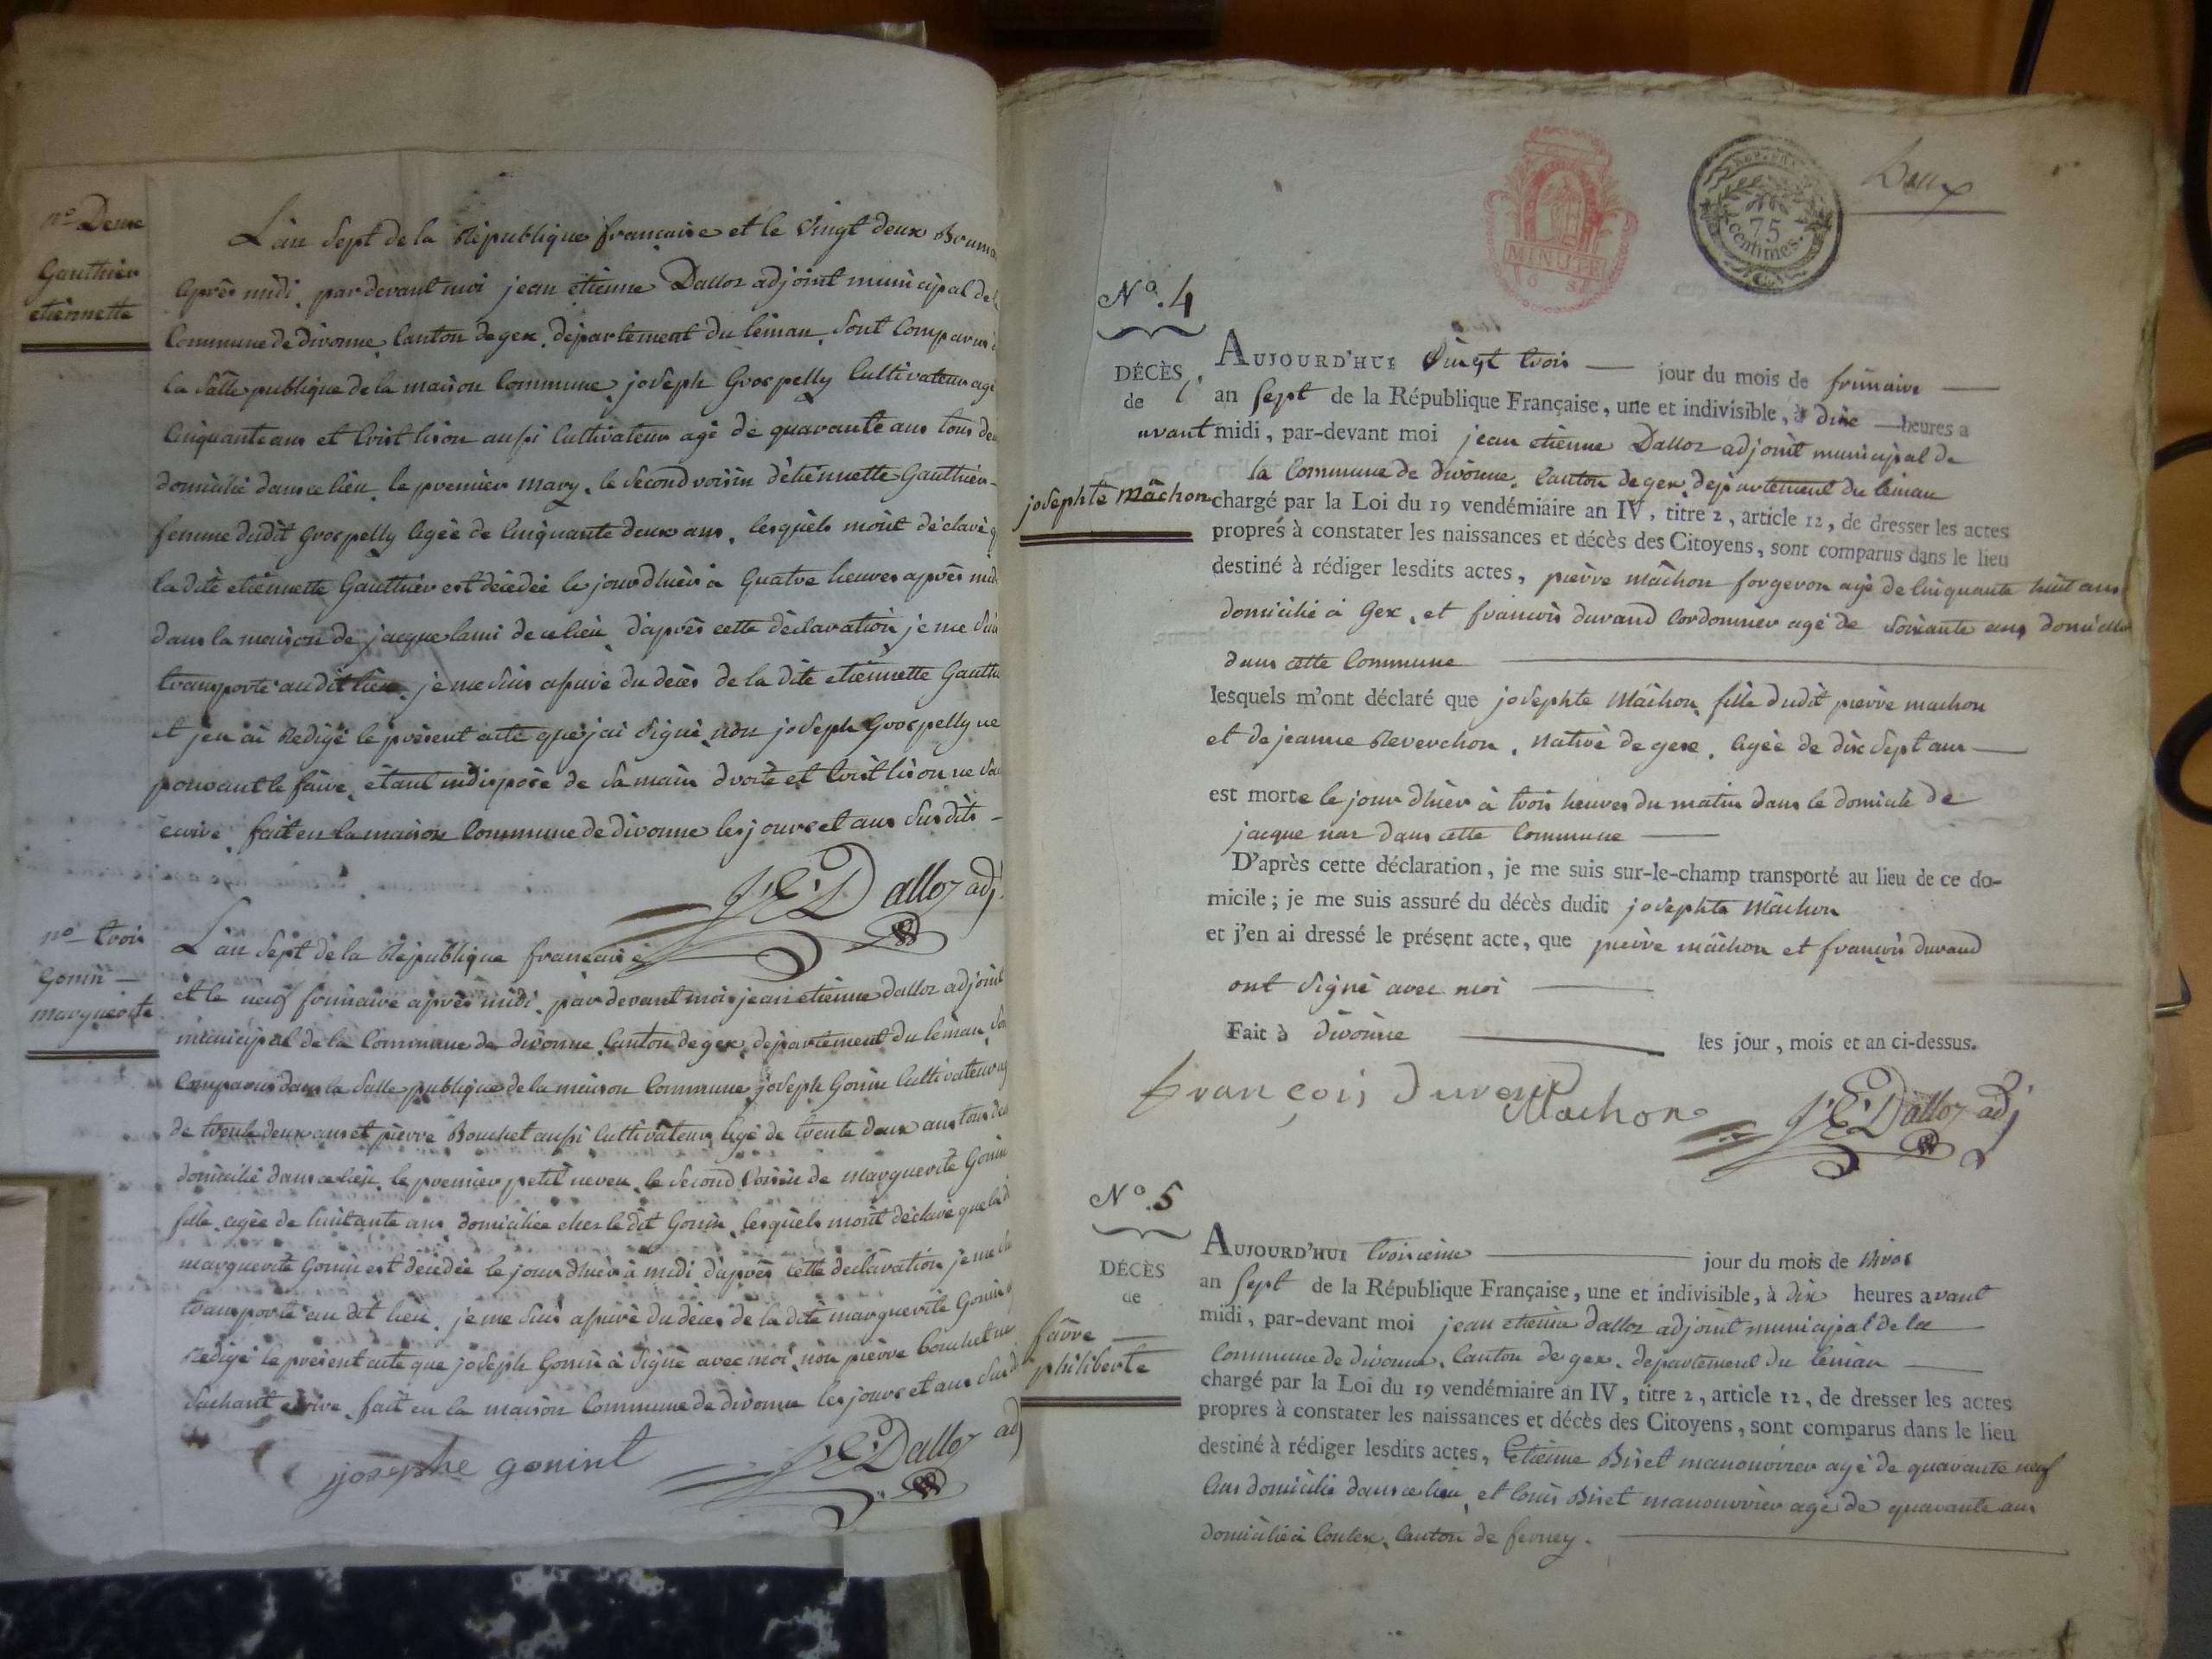 n.o Deux
Gauthier
etiennette
L'an Sept de la République francaise et le Vingt deux Bruma
après midi, par devant moi jean etienne Dalloz adjoint municipal de
Commune de divonne, Canton de gex, département du leman, sont Comparus
la Salle publique de la maison Commune, joseph Grospelly Cultivateur agé
Cinquante ans et aussi Cultivateur agé de quarante ans tous deu
domicilié dans ce lieu, le premier mary, le second voisin d'etiennette Gauthier
femme dudit Grospelly agée de Cinquante deux ans, lesquels mont déclaré q
la dite etiennette Gauthier est décedée le jour d'hier à Quatre heures après mid
dans la maison de jacque lami de ce lieu, d'après cette déclaration je me suis
transporté au dit lieu, je me suis assuré du décès de la dite etiennette Gauthi
et jen ai Redigé le présent acte que j'ai signé, non joseph Grospelly ne
pouvant le faire, étant indisposé de sa main droite et ne sa
ecrire, fait en la maison Commune de divonne les jours et ans susdits
J. E. Dalloz adj.
n.o trois
Gonin
marguerite
L'an Sept de la République francaise
et le neuf frimaire après midi, par devant moi jean etienne dalloz adjoint
municipal de la Commune de divonne, Canton de gex, département du leman, son
Comparus dans la Salle publique de la maison Commune, joseph Gonin Cultivateur ag
de trente deux ans et pierre Bouchet aussi Cultivateur agé de trente deux ans tous deu
domicilié dans ce lieu, le premier petit neveu, le second voisin de marguerite Gonin
fille, agée de huitante ans, domiciliée chez le dit Gonin, lesquels mont déclaré que la d
marguerite Gonin est décedée le jour d'hier à midi, d'après cette déclaration je me sui
transporté au dit lieu, je me suis assuré du décès de la dite marguerite Gonin
Redigé le présent acte que joseph Gonin a signé avec moi, non pierre bouchet ne
sachant écrire, fait en la maison Commune de divonne les jours et ans susd
josephe gonint
J. E. Dalloz adj
MINUTE
REP. FRA.
75
centimes.
Deux
N.o 4
DÉCÈS
de
josephte Mâchon
AUJOURD'HUI Vingt trois jour du mois de frimaire
l'an sept de la République Française, une et indivisible, à dixe heures a
avant midi, par-devant moi jean etienne Dalloz adjoint municipal de
la Commune de divonne, Canton de gex, département du leman
chargé par la Loi du 19 vendémiaire an IV, titre 2, article 12, de dresser les actes
propres à constater les naissances et décès des Citoyens, sont comparus dans le lieu
destiné à rédiger lesdits actes, pierre Mâchon forgeron agé de Cinquante huit ans
domicilié à Gex, et francois durand Cordonnier agé de soixante ans domicilié
dans cette Commune
lesquels m'ont déclaré que josephte Mâchon, fille dudit pierre machon
et de jeanne Reverchon, native de gexe, agée de dix sept ans
est morte le jour d'hier à trois heures du matin dans le domicile de
jacque nar dans cette Commune
D'après cette déclaration, je me suis sur-le-champ transporté au lieu de ce do-
micile; je me suis assuré du décès dudit josephte Mâchon
et j'en ai dressé le présent acte, que pierre mâchon et francois durand
ont signé avec moi
Fait à divonne les jour, mois et an ci-dessus.
françois Durand
Machon
J. E. Dalloz adj
N.o 5
DÉCÈS
de
favre
philiberte
AUJOURD'HUI troisieme jour du mois de Nivos
an sept de la République Française, une et indivisible, à dix heures avant
midi, par-devant moi jean etienne dalloz adjoint municipal de la
Commune de divonne, Canton de gex, département du leman
chargé par la Loi du 19 vendémiaire an IV, titre 2, article 12, de dresser les actes
propres à constater les naissances et décès des Citoyens, sont comparus dans le lieu
destiné à rédiger lesdits actes, Etienne Biset manouvrier agé de quarante neuf
ans domicilié dans ce lieu, et louis Biset manouvrier agé de quarante ans
domicilié à Coulex, Canton de ferney.